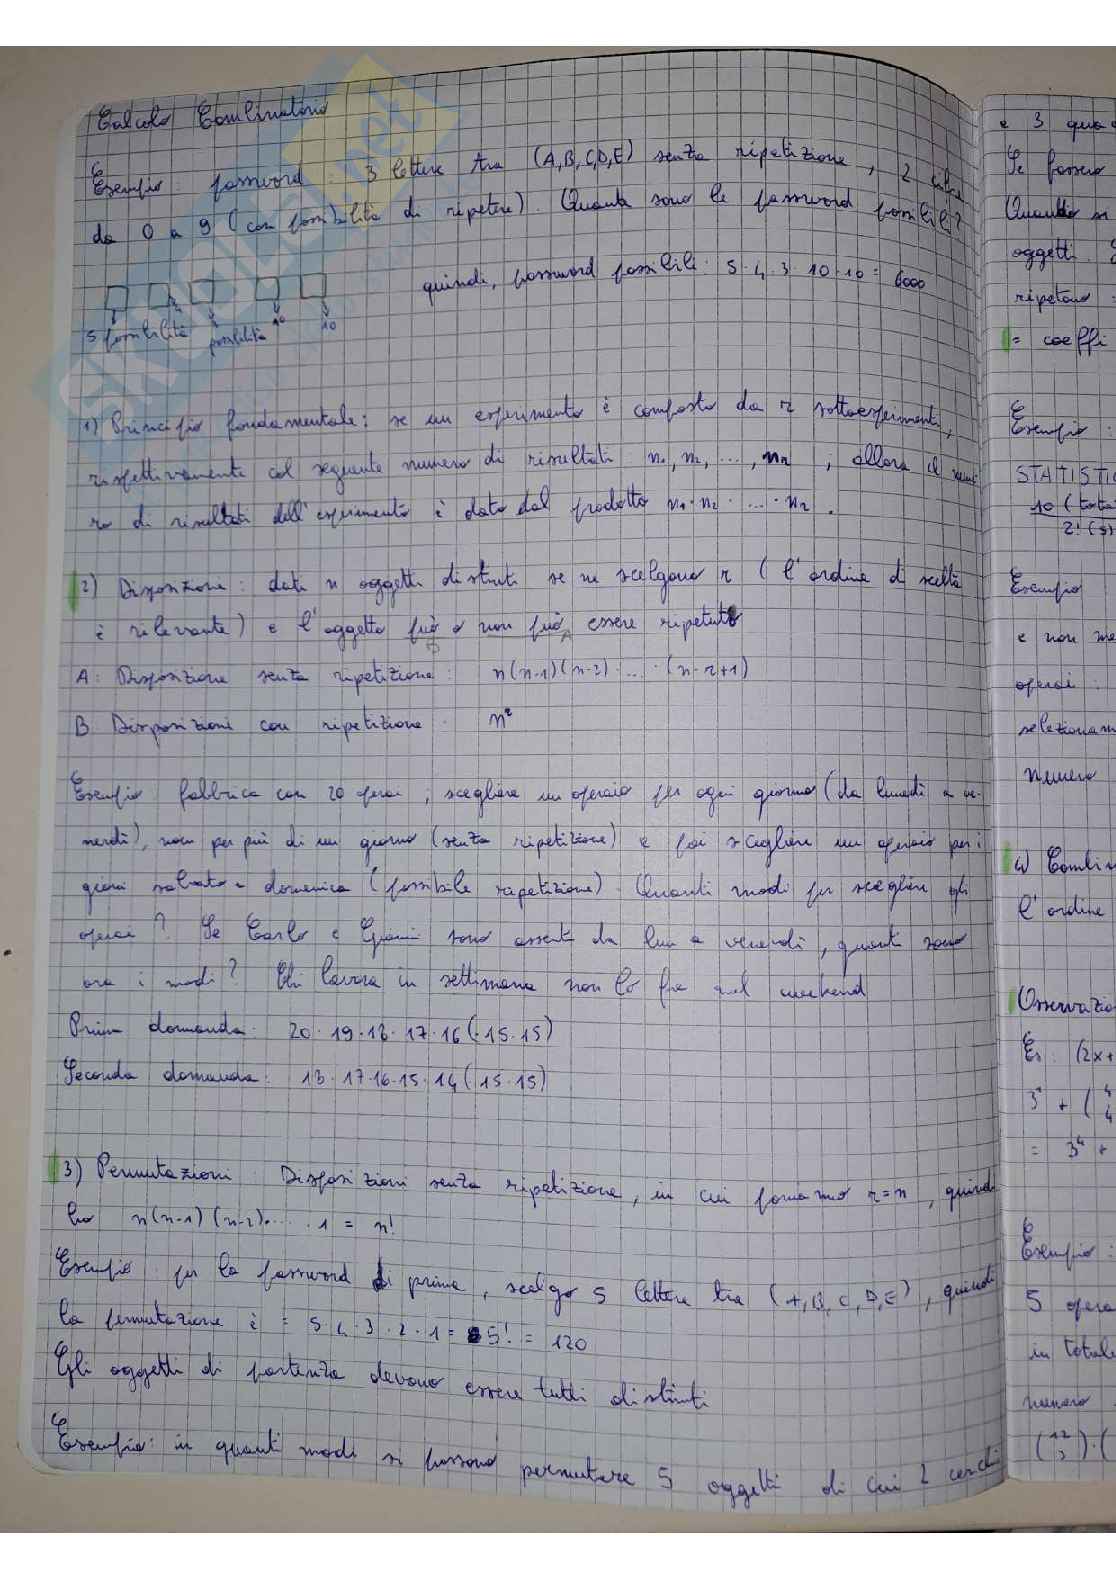 Calcolo Combinatorio
Esempio: password: 3 lettere tra (A,B,C,D,E) senza ripetizione, 2 cifre
da 0 a 9 (con possibilità di ripetere). Quante sono le password possibili?
quindi, password possibili: 5·4·3·10·10 = 6000
5 possibilità possibilità 10 10
1) Principio fondamentale: se un esperimento è composto da r sottoesperimenti,
rispettivamente col seguente numero di risultati: n₁, n₂, ..., nr ; allora il nume
ro di risultati dell'esperimento è dato dal prodotto n₁·n₂· ... ·nr.
2) Disposizione: dati n oggetti distinti se ne scelgono r (l'ordine di scelta
è rilevante) e l'oggetto può o non può essere ripetuto
B A
A: Disposizione senza ripetizione: n(n-1)(n-2)· ... ·(n-r+1)
B Disposizioni con ripetizione: nʳ
Esempio: fabbrica con 20 operai, scegliere un operaio per ogni giorno (da lunedì a ve-
nerdì), non per più di un giorno (senza ripetizione) e poi scegliere un operaio per i
giorni sabato e domenica (possibile ripetizione). Quanti modi per scegliere gli
operai? Se Carlo e Gianni sono assenti da lun a venerdì, quanti sono
ora i modi? Chi lavora in settimana non lo fa nel weekend
Prima domanda: 20·19·18·17·16(·15·15)
Seconda domanda: 18·17·16·15·14(·15·15)
3) Permutazioni: Disposizioni senza ripetizione, in cui poniamo r=n, quindi
ho n(n-1)(n-2)· ... ·1 = n!
Esempio: per la password di prima, scelgo 5 lettere tra (A,B,C,D,E), quindi
la permutazione è = 5·4·3·2·1 = 5! = 120
Gli oggetti di partenza devono essere tutti distinti
Esempio: in quanti modi si possono permutare 5 oggetti di cui 2 cerchi
e 3 quad
Se fossero
oggetti.
ripetono
= coeffi
Esempio:
STATISTIC
10 (tota
2! (s)
Esempio
e non me
operai:
selezionam
numero
4) Combin
l'ordine
Osservazio
Es: (2x+
= 3⁴ +
Esempio:
5 opera
in totale
numero
(12 3)·(
SKUOLA.net